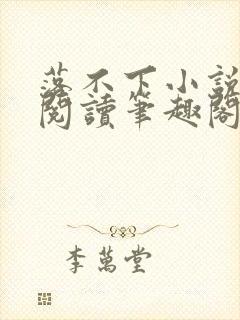 落不下小說
閱讀筆趣閣
李萬堂